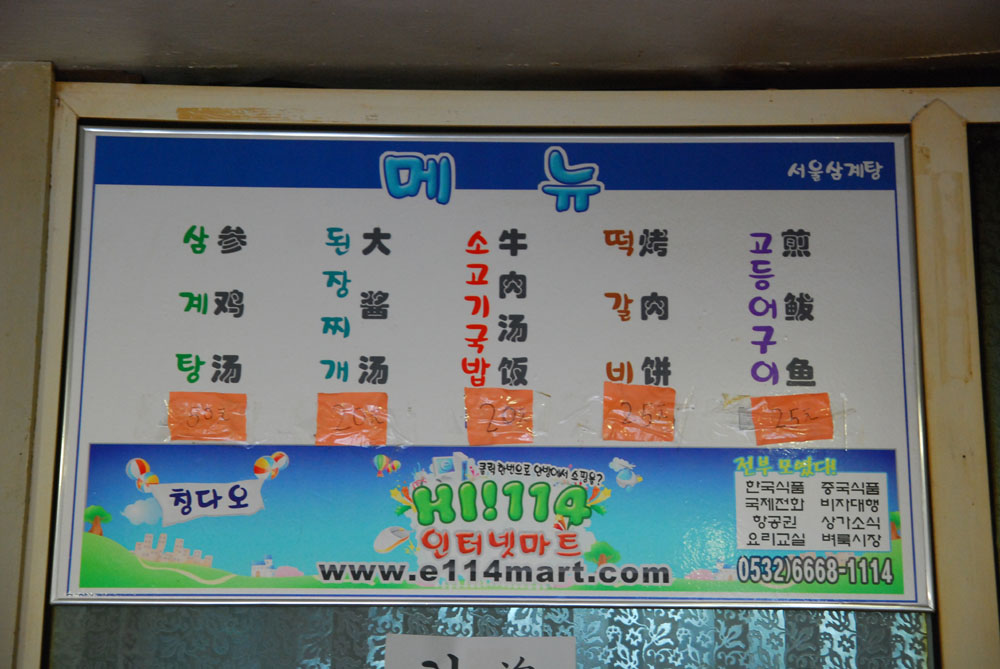 메뉴
서울삼계탕
삼계탕
参鸡汤
된장찌개
大酱汤
소고기국밥
牛肉汤饭
떡갈비
烤肉饼
고등어구이
煎鲅鱼
20元
25元
25元
청다오
클릭 한번으로 안방에서 쇼핑을?
HI!114
인터넷마트
www.e114mart.com
전부 모였다!
한국식품 중국식품
국제전화 비자대행
항공권 상가소식
요리교실 벼룩시장
0532)6668-1114